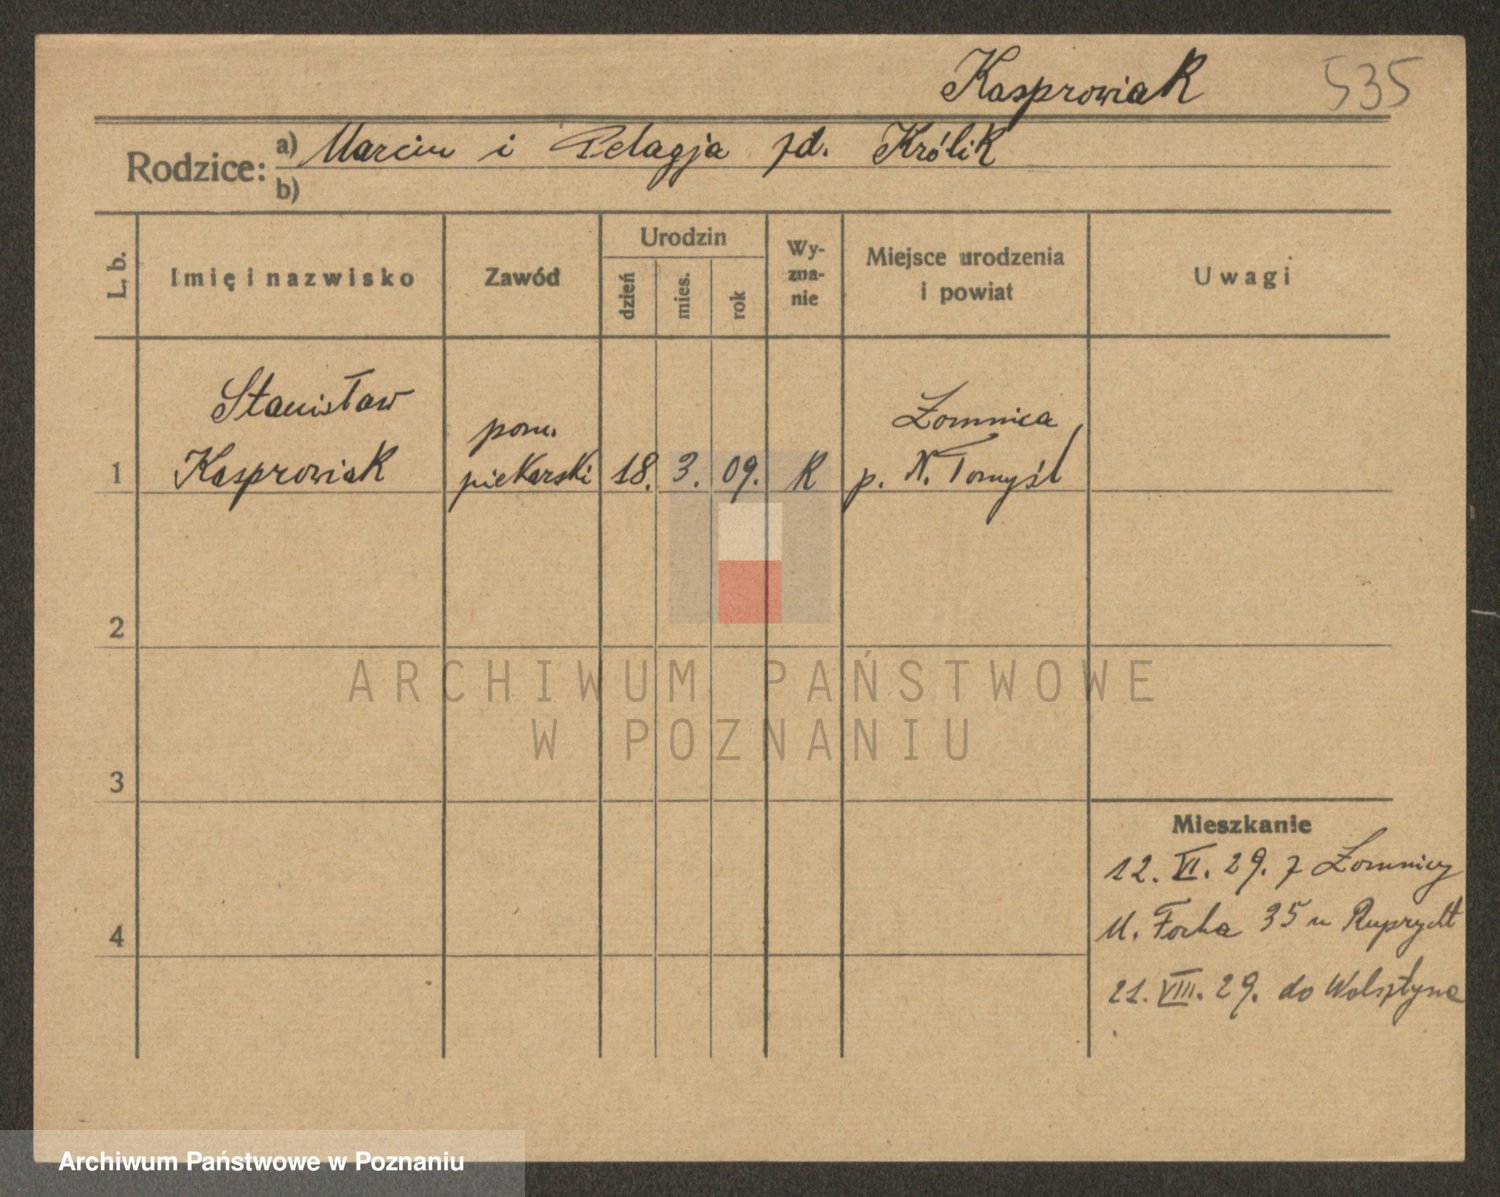 Kasprowiak 535
Rodzice: a) Marcin i Pelagja zd. Królik
b)
L. b.
Imię i nazwisko
Zawód
Urodzin
dzień
mies.
rok
Wy-
zna-
nie
Miejsce urodzenia
i powiat
Uwagi
Stanisław
Kasprowiak
pom.
piekarski
18. 3. 09. R
Łomnica,
p. N. Tomyśl
1
2
3
4
ARCHIWUM PAŃSTWOWE
W POZNANIU
Mieszkanie
12. VI. 29. z Łomnicy
M. Focha 35 u Ruprycht
21. VIII. 29. do Wolsztyna
Archiwum Państwowe w Poznaniu